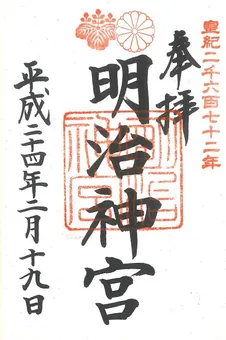 皇紀二千六百七十二年
奉拝
明治神宮
平成二十四年二月十九日